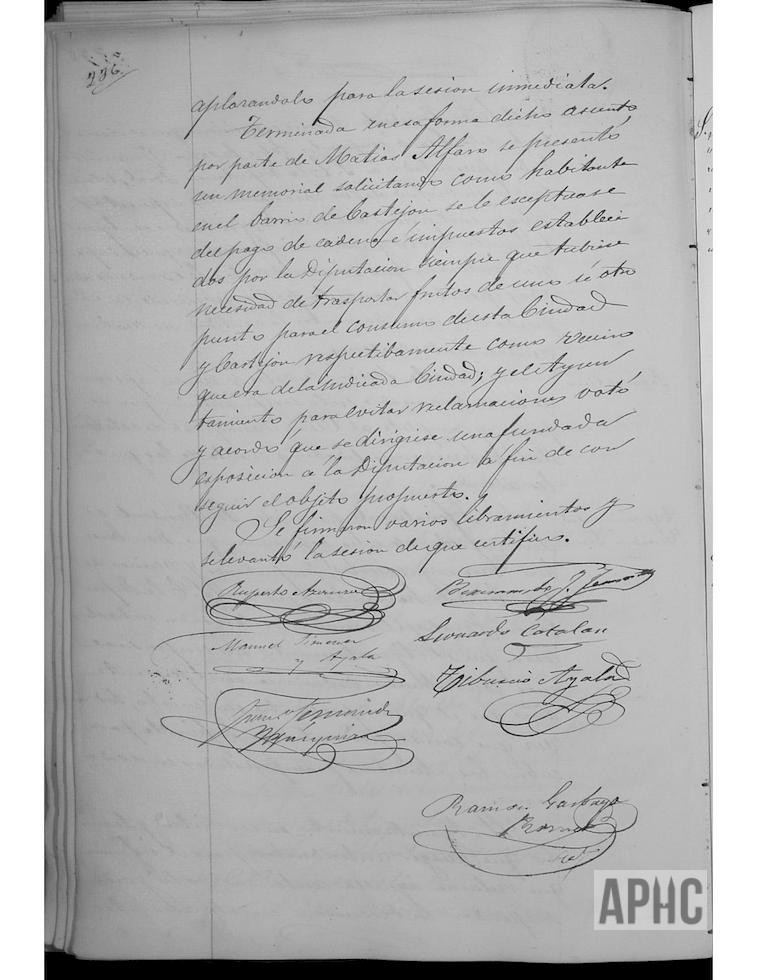 236.
aplazandolo para la sesion inmediata.
Terminada en esa forma dicho asunto
por parte de Matias Alfaro se presentó
un memorial solicitando como habitante
en el barrio de Castejon se le exceptuase
del pago de cadena é impuestos estableci
dos por la Diputacion siempre que tubiese
necesidad de trasportar frutos de uno ú otro
punto para el consumo de esta Ciudad
y Castejon respectibamente como vecino
que era de la indicada Ciudad; y el Ayun
tamiento para evitar reclamaciones votó
y acordó que se dirigiese una fundada
esposicion á la Diputacion á fin de con
seguir el objeto propuesto.
Se firmaron varios libramientos y
se levantó la sesion de que certifico.
Ruperto
Manuel Jimenez
y Ayala
Leonardo Catalan
Tiburcio Ayala
Ramon Garbayo
APHC